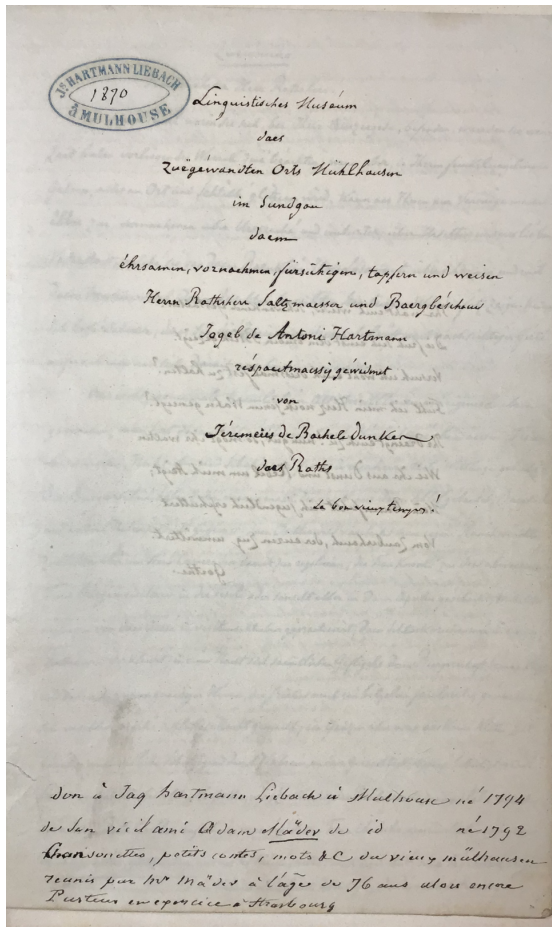 Jn HARTMANN LIEBACH
1870
à MULHOUSE
Linguistisches Muséum
daes
Zuëgéwandten Orts Mühlhausen
im Sundgau
daem
éhrsamen, vornaehmen, fürsichtigen, tapfern und weisen
Herrn Rathsherr Saltzmaesser und Baergbéschauer
Jogeb de Antoni Hartmann
réspaectmaessig géwidmet
von
Jéremeies de Baehele Dunker
daes Raths
Le bon vieux temps!
don à Jaq Hartmann Liebach à Mulhouse né 1794
de son vieil ami Adam Mäder de id né 1792
Chansonettes, petits contes, mots &C du vieux mülhausen
reunis par Mr Mäder à l'âge de 76 ans alors encore
Pasteur en exercice à Strasbourg